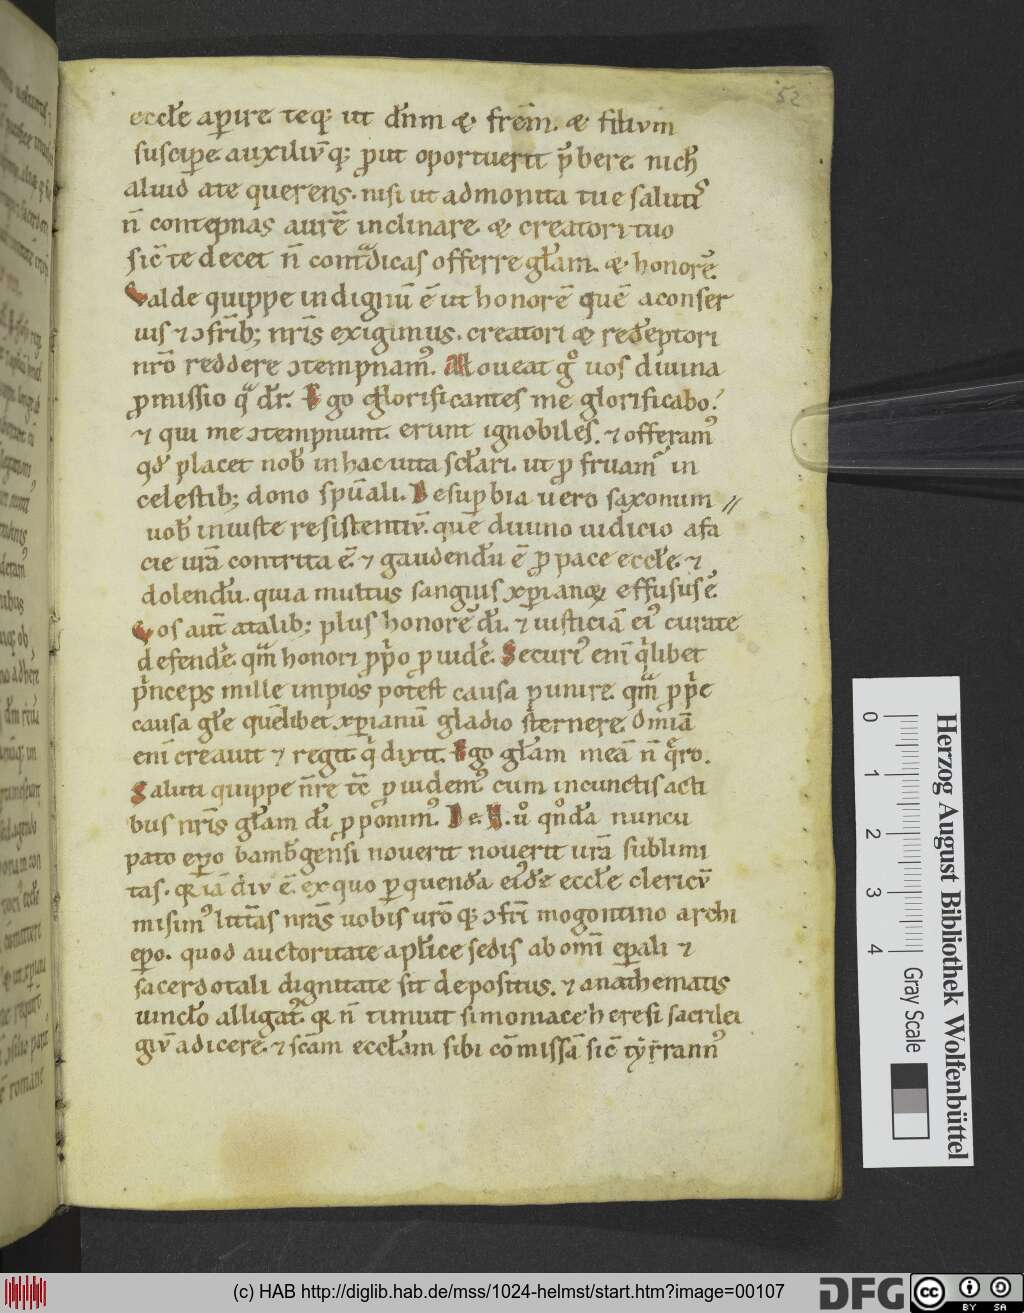 52
eccłe aꝑire teq; ut dn̄m ⁊ frēm. ⁊ filivm
suscipe. auxiliv̄q; ꝓut oportuerit p̄bere. nich̄
aliud ate querens. nisi ut admonita tue saluti᷒
n̄ contepnas aurē inclinare. ⁊ creatori tuo
sic̄ te decet n̄ contͣdicas offerre głam. ⁊ honorē.
Valde quippe indignū ē ut honorē quē aconser
uis ⁊ ↄfrīb; nr̄is exigimus. creatori ⁊ redēptori
nrō reddere ↄtempnam᷒. Moueat gͦ uos diuina
ꝓmissio qͣ dr̄. Ego glorificantes me glorificabo.
⁊ qui me ↄtempnunt. erunt ignobiles. ⁊ offeram᷒
qđ placet nob̄ in hac uita scłari. ut ꝑfruam᷒ in
celestib; dono spūali. De suꝑbia uero saxonum
uob̄ iniuste resistentiv̄. quē diuino iudicio afa
cie urā contrita ē. ⁊ gaudendū ē ꝓ pace eccłe. ⁊
dolendū. quia multus sanguis xp̄ianoꝝ effusus ē.
Vos aut̄ atalib; plus honorē dī. ⁊ iusticiā ei᷒ curate
defendē. qͣm honori ꝓp̄o ꝓuidē. Securi᷒ eni qͥlibet
pͥnceps mille impios potest causa punire. qͣm ꝓpͥe
causa głe quēlibet xp̄ianū gladio sternere. Omīa
eni creauit ⁊ regit qͥ dixit. Ego głam meā n̄ qͤro.
Saluti quippe nr̄e tc̄ ꝓuidem᷒ cum incunctis acti
bus nr̄is głam dī p̄ponim᷒. De. h. ů qͦnda nuncu
pato ep̄o bamb̄gensi nouerit nouerit urā sublimi
tas. qꝛ iā div ē. ex quo ꝑ quenda ei᷒de eccłe clericv̄
misim᷒ litt̄as nr̄as uobis urōq; ↄfrī mogontino archi
ep̄o. quod auctoritate apłice sedis ab omī ep̄ali ⁊
sacerdotali dignitate sit depositus. ⁊ anathematis
uincło alligat᷒. qꝛ n̄ timuit simoniace heresi sacrilei
giv̄ adicere. ⁊ scām eccłam sibi cōmissā sic̄ tyrann᷒
0 1 2 3 4
Herzog August Bibliothek Wolfenbüttel
Gray Scale
(c) HAB http://diglib.hab.de/mss/1024-helmst/start.htm?image=00107
DFG
cc BY SA